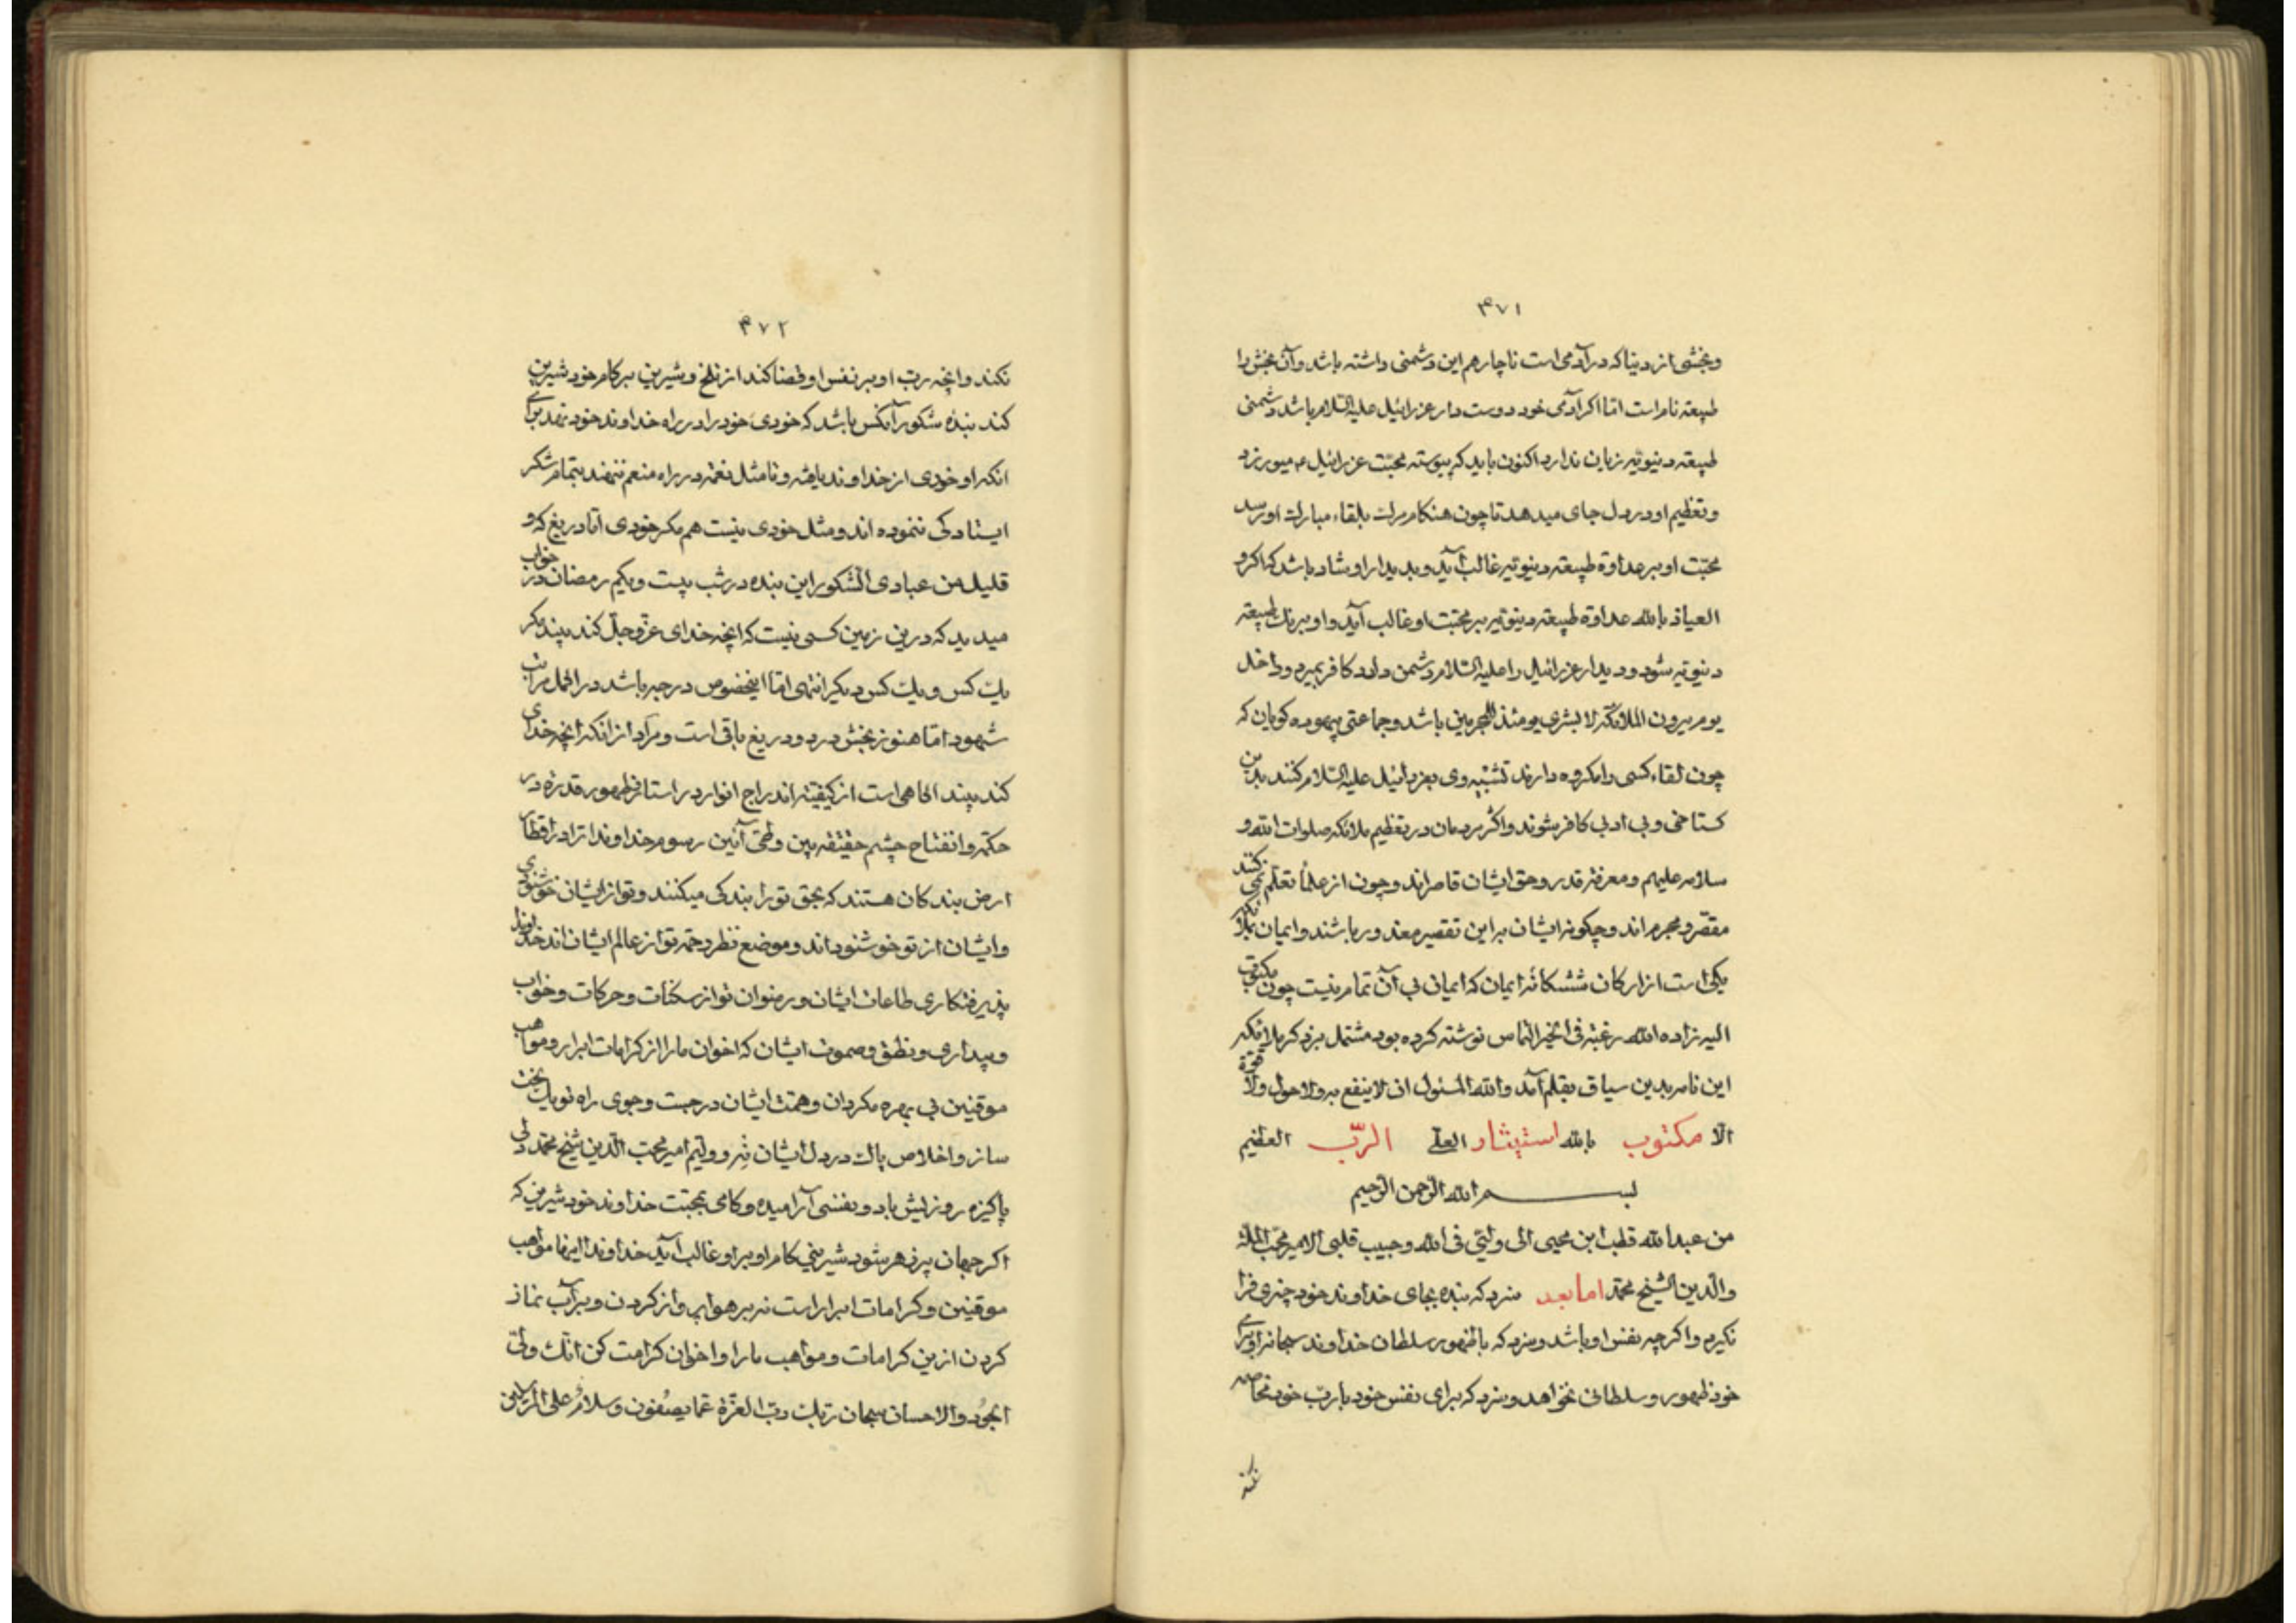 ۳۷۱
وبخشی از دنیا که در آدمی است ناچار هم این دشمنی داشته باشد وآن بخش را
طبیعة نام است اما اکر آدمی خود دوست دار عزرائیل علیه السّلام باشد دشمنی
طبیعة دنیویّه زیان ندارد اکنون باید که پیوسته محبّت عزرائیل ع میورزد
وتعظیم او در دل جای میدهد تا چون هنکام مرك بلقاء مبارك او رسد
محبّت او بر عداوة طبیعة دنیویّه غالب آید وبدیدار او شاد باشد که اکر و
العیاذ بالله عداوة طبیعة دنیویّه بر محبّت او غالب آید واو برنك طبیعة
دنیویّه شود ودیدار عزرائیل را علیه السّلام دشمن دارد کافر بمیرد وداخل
یوم یرون الملائکة لا بشری یومئذ للمجرمین باشد وجماعتی بیهوده کویان که
چون لقاء کسی را مکروه دارند تشبیه وی بعزرائیل علیه السّلام کنند بدین
کستاخی وبی ادبی کافر شوند واکثر مردمان در تعظیم ملائکه صلوات الله و
سلامه علیهم ومعرفة قدر وحق ایشان قاصراند وچون از علما تعلّم نمی کنند
مقصّر ومجرم اند وچکونه ایشان بر این تقصیر معذور باشند وایمان بملائکه
یکی است از ارکان ششکانهٔ ایمان که ایمان بی آن تمام نیست چون مکتوب
الیه زاده الله رغبة فی الخیر التماس نوشته کرده بود مشتمل بر ذکر ملائکه
این نامه بدین سیاق بقلم آمد والله المسئول ان لا ینفع به ولا حول ولا قوّة
الّا مکتوب بالله استیثار العلی الربّ العظیم
بسم الله الرّحمن الرّحیم
من عبد الله قطب ابن محیی الی ولیّی فی الله وحبیب قلبی الامیر محبّ الملّة
والدّین الشیخ محمّد اما بعد سزد که بنده بجای خداوند خود چیزی فرا
نکیرد واکرچه نفس او باشد وسزد که با ظهور سلطان خداوند سبحانه او برای
خود ظهور وسلطانی نخواهد وسزد که برای نفس خود با ربّ خود مخاصمه
نکند
۳۷۲
نکند وانچه ربّ او بر نفس او قضا کند از تلخ وشیرین بر کام خود شیرین
کند بندهٔ شکور آنکس باشد که خودیِ خود را در راه خداوند خود نهد برای
انکه او خودی از خداوند یافته وتا مثل نعمة در راه منعم ننهند بتمام شکر
ایستادکی ننموده اند ومثل خودی نیست هم مکر خودی امّا دریغ که و
قلیل من عبادی الشّکور این بنده در شب بیست ویکم رمضان در خواب
میدید که درین زمین کسی نیست که انچه خدای عزّ وجلّ کند بیند مکر
یك کس ویك کس دیکر انتهی امّا این خصوص در جبر باشد در اکمل مراتب
شهود امّا هنوز بخش درد ودریغ باقی است ومراد از انکه انچه خدای
کند بیند اکاهی است از کیفیّة اندراج انوار در استار وظهور قدرة در
حکمة وانفتاح چشم حقیقة بین وطیّ آئین رسوم خداوندا ترا در اقطار
ارض بندکان هستند که بحق تو را بندکی میکنند وتو از ایشان خوشنودی
وایشان از تو خوشنوداند وموضع نظر رحمة تو از عالم ایشان اند خداوندا
پذیرفتکاری طاعات ایشان ورضوان تو از سکنات وحرکات وخواب
وبیداری ونطق وصموت ایشان که اخوان ما را از کرامات ابرار ومواهب
موقنین بی بهره مکردان وهمّت ایشان در جست وجوی راه تو یك لخت
ساز واخلاص پاك در دل ایشان نِه وولیّم امیر محبّ الدّین شیخ محمّد دلی
پاکیزه روزیش باد ونفسی آرامیده وکامی بمحبّت خداوند خود شیرین که
اکر جهان پر زهر شود شیرینی کام او بر او غالب آید خداوندا اینها مواهب
موقنین وکرامات ابرار است نه بر هوا پرواز کردن وبر آب نماز
کردن ازین کرامات ومواهب ما را واخوان کرامت کن انّك ولیّ
الجود والاحسان سبحان ربّك ربّ العزّة عمّا یصفون وسلام علی المرسلین